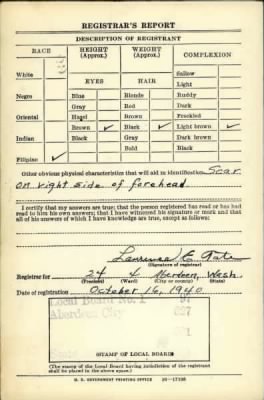 REGISTRAR'S REPORT
DESCRIPTION OF REGISTRANT
RACE HEIGHT (Approx.) WEIGHT (Approx.) COMPLEXION
White Sallow
EYES HAIR Light
Negro Blue Blonde Ruddy
Gray Red Dark
Oriental Hazel Brown Freckled
Brown ✓ Black ✓ Light brown ✓
Indian Black Gray Dark brown
Bald Black
Filipino ✓
Other obvious physical characteristics that will aid in identification Scar
on right side of forehead.
I certify that my answers are true; that the person registered has read or has had
read to him his own answers; that I have witnessed his signature or mark and that
all of his answers of which I have knowledge are true, except as follows:
E. Tate
(Signature of registrar)
Registrar for 24 4 Aberdeen, Wash.
(Precinct) (Ward) (City or county) (State)
Date of registration October 16, 1940
Local Board No. 1 97
Aberdeen City 027
STAMP OF LOCAL BOARD
(The stamp of the Local Board having jurisdiction of the registrant
shall be placed in the above space.)
U. S. GOVERNMENT PRINTING OFFICE 16—17105